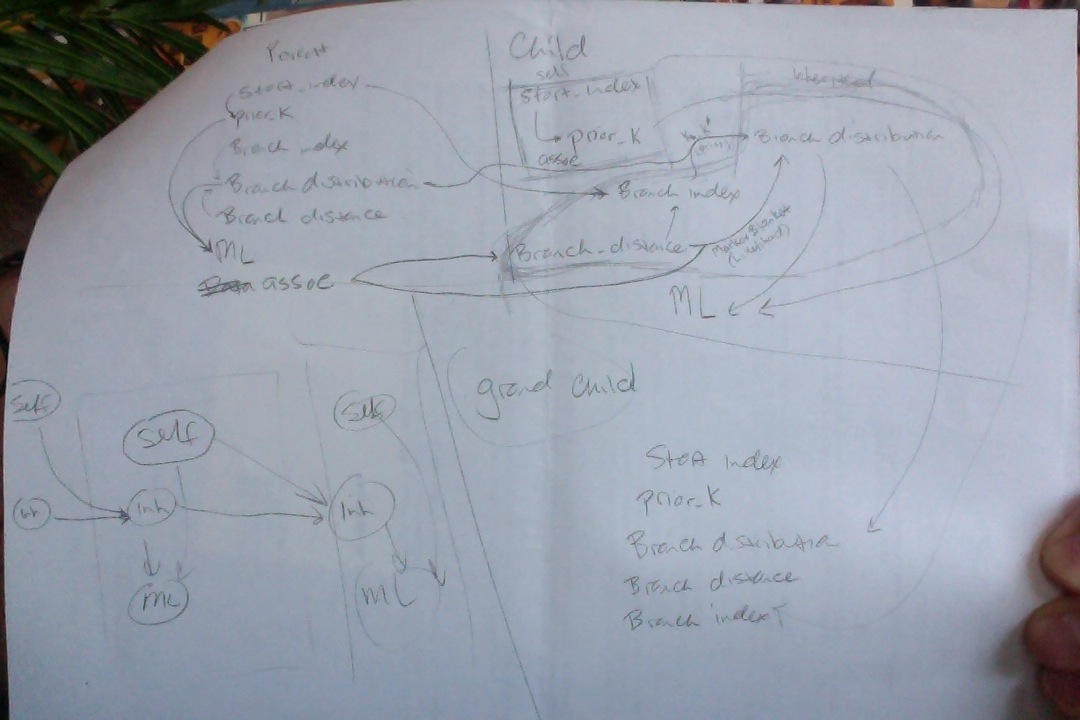 Parent
Start_index
prior_K
Branch index
Branch distribution
Branch distance
ML
assoc
Child
self
Start_index
prior_K
assoc
inherited
Branch distribution
Branch index
Branch_distance
Markov Blanket
(Likelihood)
ML
grand child
Start index
prior_K
Branch distribution
Branch distance
Branch index
Self
Self
Self
Inh
Inh
Inh
ML
ML